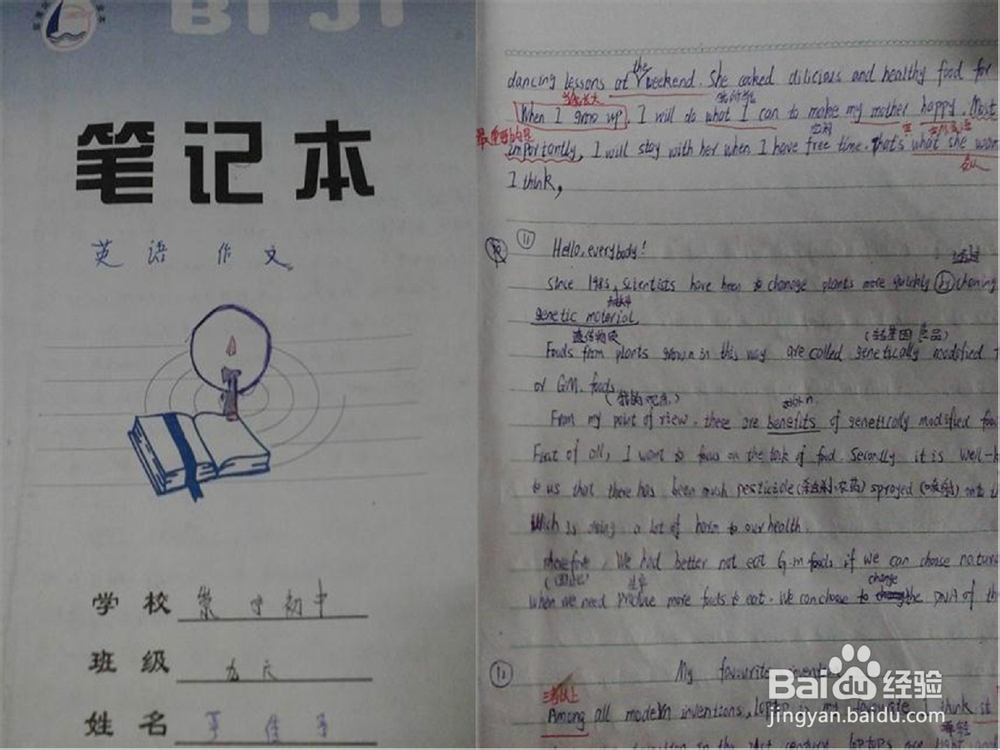 BIJI
笔记本
英语 作文
学校
初中
班级 九六
姓名
the
dancing lessons at weekend. She cooked dilicious and healthy food for
当我长大
When I grow up, I will do what I can to make my mother happy. Most
最重要的是
空闲
importantly, I will stay with her when I have free time. That's what she wan
I think,
11
Hello, everybody!
Since 1983, scientists have been to change plants more quickly by
genetic material
遗传物质
(转基因食品)
Foods from plants grown in this way are called genetically modified
or G.M. foods
(我的观点)
From my point of view, there are benefits of genetically modified foo
First of all, I want to focus on the lack of food. Secondly it is well-k
to us that there has been much pesticide (杀虫剂,农药) sprayed (喷射) onto th
Which is doing a lot of harm to our health.
Therefore, We had better not eat G.m foods if we can choose natura
(因此)
change
when we need produce more foods to eat. We can choose to the DNA of th
12
My favourite invent
三者以上
Among all modern inventions, laptop is my favourite I think it
century, laptops are light and
年轻
Baidu 经验
jingyan.baidu.com